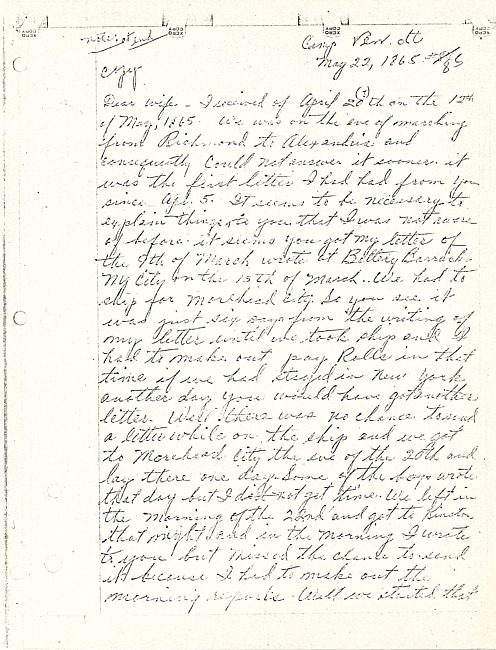 note at end
copy
Camp near Va.
May 22, 1865
Dear wife - I received of April 20th (?) on the 12th
of May, 1865. We was on the eve of marching
from Richmond to Alexandria and
consequently Could not answer it sooner. it
was the first letter I had had from you
since Apr. 5. It seems to be necessary to
explain things to you that I was not aware
of before. it seems you got my letter of
the 9th of March wrote at Battery Barrack
NY City on the 15th of March. We had to
ship for Morehead City. So you see it
was just six days from the writing of
my letter until we took ship and I
had to make out pay Rolls in that
time if we had stayed in New York
another day you would have got another
letter. Well there was no chance to send
a letter while on the ship and we got
to Morehead City the eve of the 20th and
lay there one day. Some of the boys wrote
that day but I did not get time. We left in
the morning of the 22nd and got to Kinston
that night and in the morning I wrote
to you but missed the chance to send
it because I had to make out the
morning reports. Well we started that